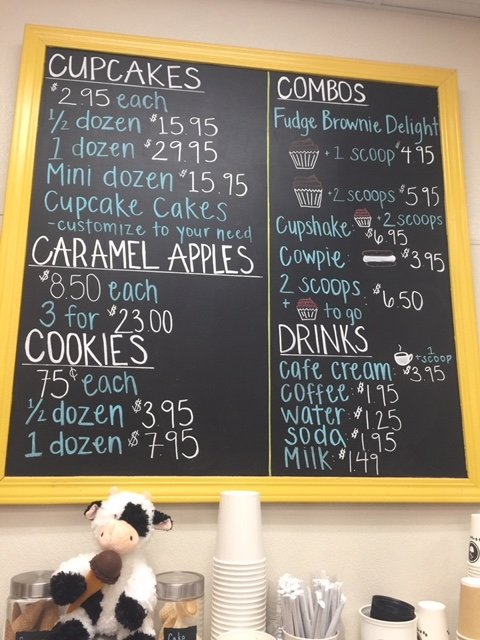 CUPCAKES
$2.95 each
1/2 dozen $15.95
1 dozen $29.95
Mini dozen $15.95
Cupcake Cakes
-customize to your need
CARAMEL APPLES
$8.50 each
3 for $23.00
COOKIES
75¢ each
1/2 dozen $3.95
1 dozen $7.95
COMBOS
Fudge Brownie Delight
+1 scoop $4.95
+2 scoops $5.95
Cupshake: +2 scoops
$6.95
Cowpie: $3.95
2 scoops
+ to go: $6.50
DRINKS
1
+scoop
cafe cream: $3.95
coffee: $1.95
water: $1.25
soda: $1.95
Milk: $1.49